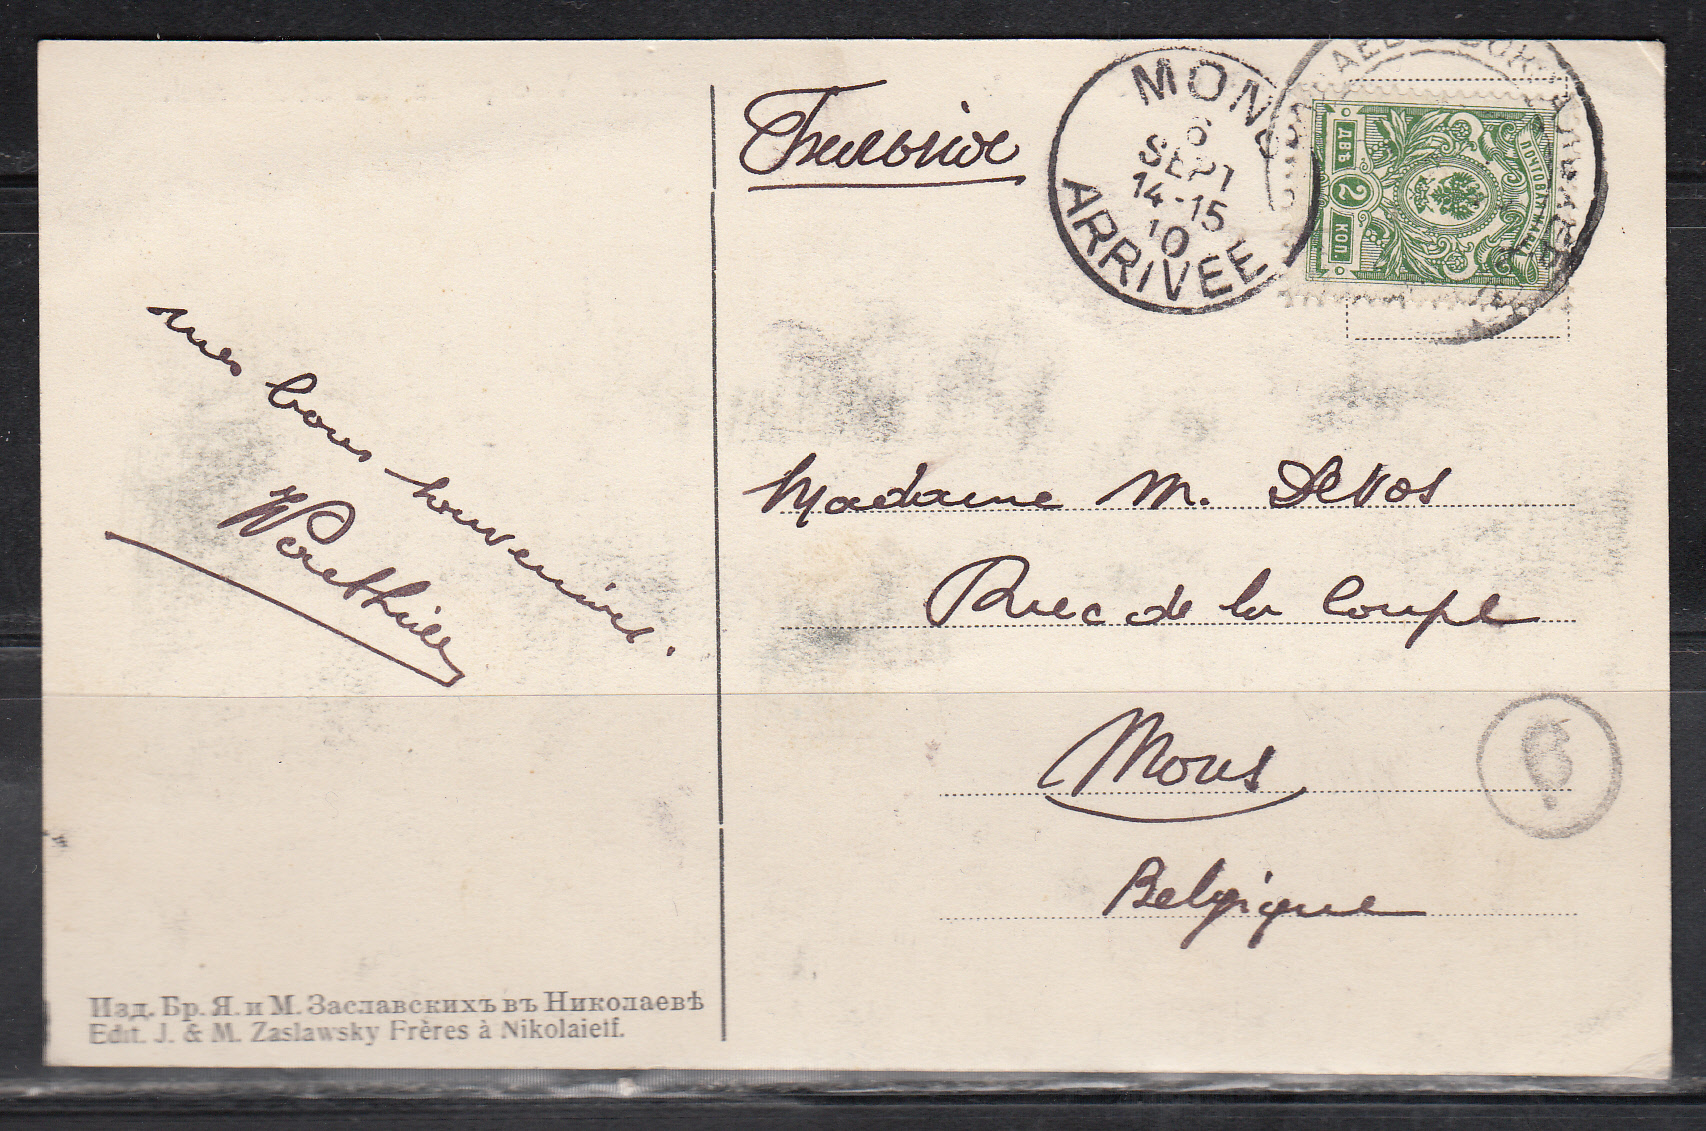 Бельгiя
MONS
6
SEPT
14-15
10
ARRIVEE
ПОЧТОВАЯ МАРКА
ДВѢ 2 КОП.
mes bons souvenirs.
Madame M. Devos
Rue de la Coupe
Mons
Belgique
Изд. Бр. Я. и М. Заславскихъ въ Николаевѣ
Edit. J. & M. Zaslawsky Frères à Nikolaieff.